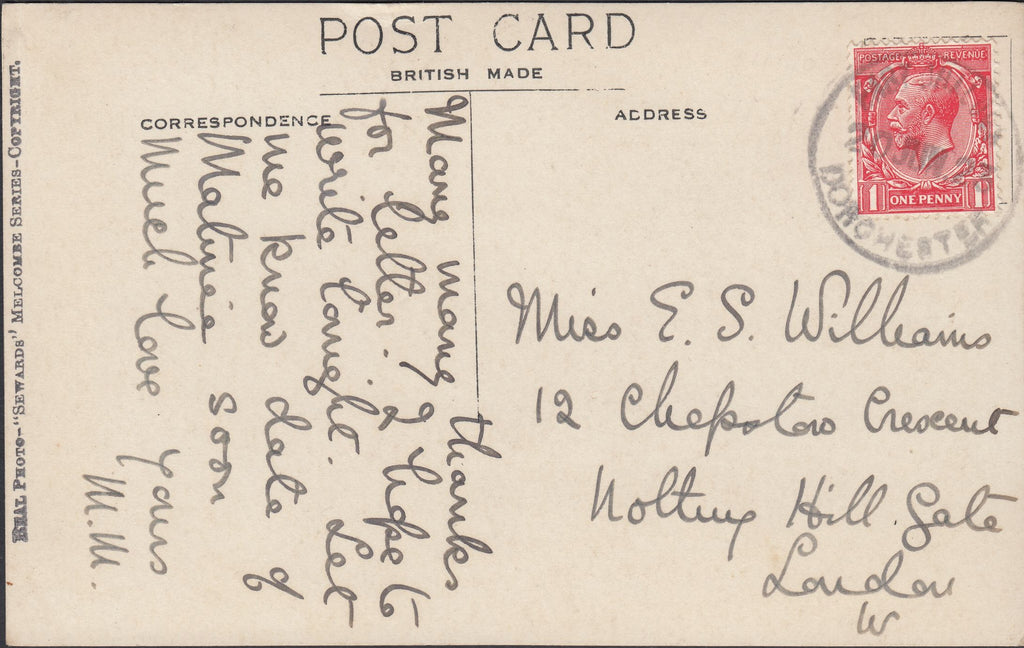 POST CARD
BRITISH MADE
CORRESPONDENCE
ADDRESS
Many many thanks
for letter. I hope to
write tonight. Let
me know date of
Matinée soon
Much Love Yours
M.M.
Miss E. S. Williams
12 Chepstow Crescent
Notting Hill Gate
London
W
POSTAGE REVENUE
1 ONE PENNY 1
DORCHESTER
REAL PHOTO-"SEWARDS' MELCOMBE SERIES-COPYRIGHT.